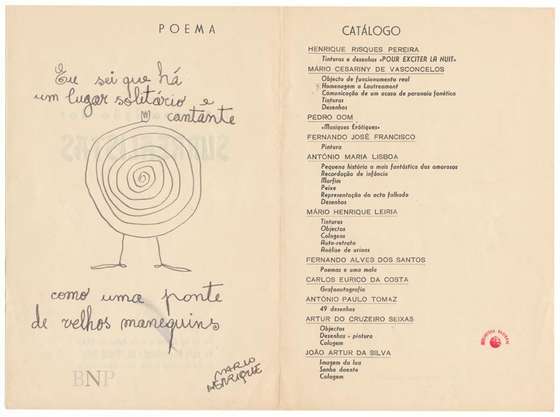 POEMA
Eu sei que há
um lugar solitário e
cantante
como uma ponte
de velhos manequins
MARIO
HENRIQUE
BNP
CATÁLOGO
HENRIQUE RISQUES PEREIRA
Tinturas e desenhos «POUR EXCITER LA NUIT»
MÁRIO CESARINY DE VASCONCELOS
Objecto de funcionamento real
Homenagem a Lautreamont
Comunicação de um acaso de paranoia fonética
Tinturas
Desenhos
PEDRO OOM
«Musiques Erótiques»
FERNANDO JOSÉ FRANCISCO
Pintura
ANTÓNIO MARIA LISBOA
Pequena história a mais fantástica das amorosas
Recordação de infância
Marfim
Peixe
Representação do acto falhado
Desenhos
MÁRIO HENRIQUE LEIRIA
Tinturas
Objectos
Colagens
Auto-retrato
Análise de urinas
FERNANDO ALVES DOS SANTOS
Poemas e uma mala
CARLOS EURICO DA COSTA
Grafoautografia
ANTÓNIO PAULO TOMAZ
49 desenhos
ARTUR DO CRUZEIRO SEIXAS
Objectos
Desenhos - pintura
Colagem
JOÃO ARTUR DA SILVA
Imagem da lua
Sonho doente
Colagem